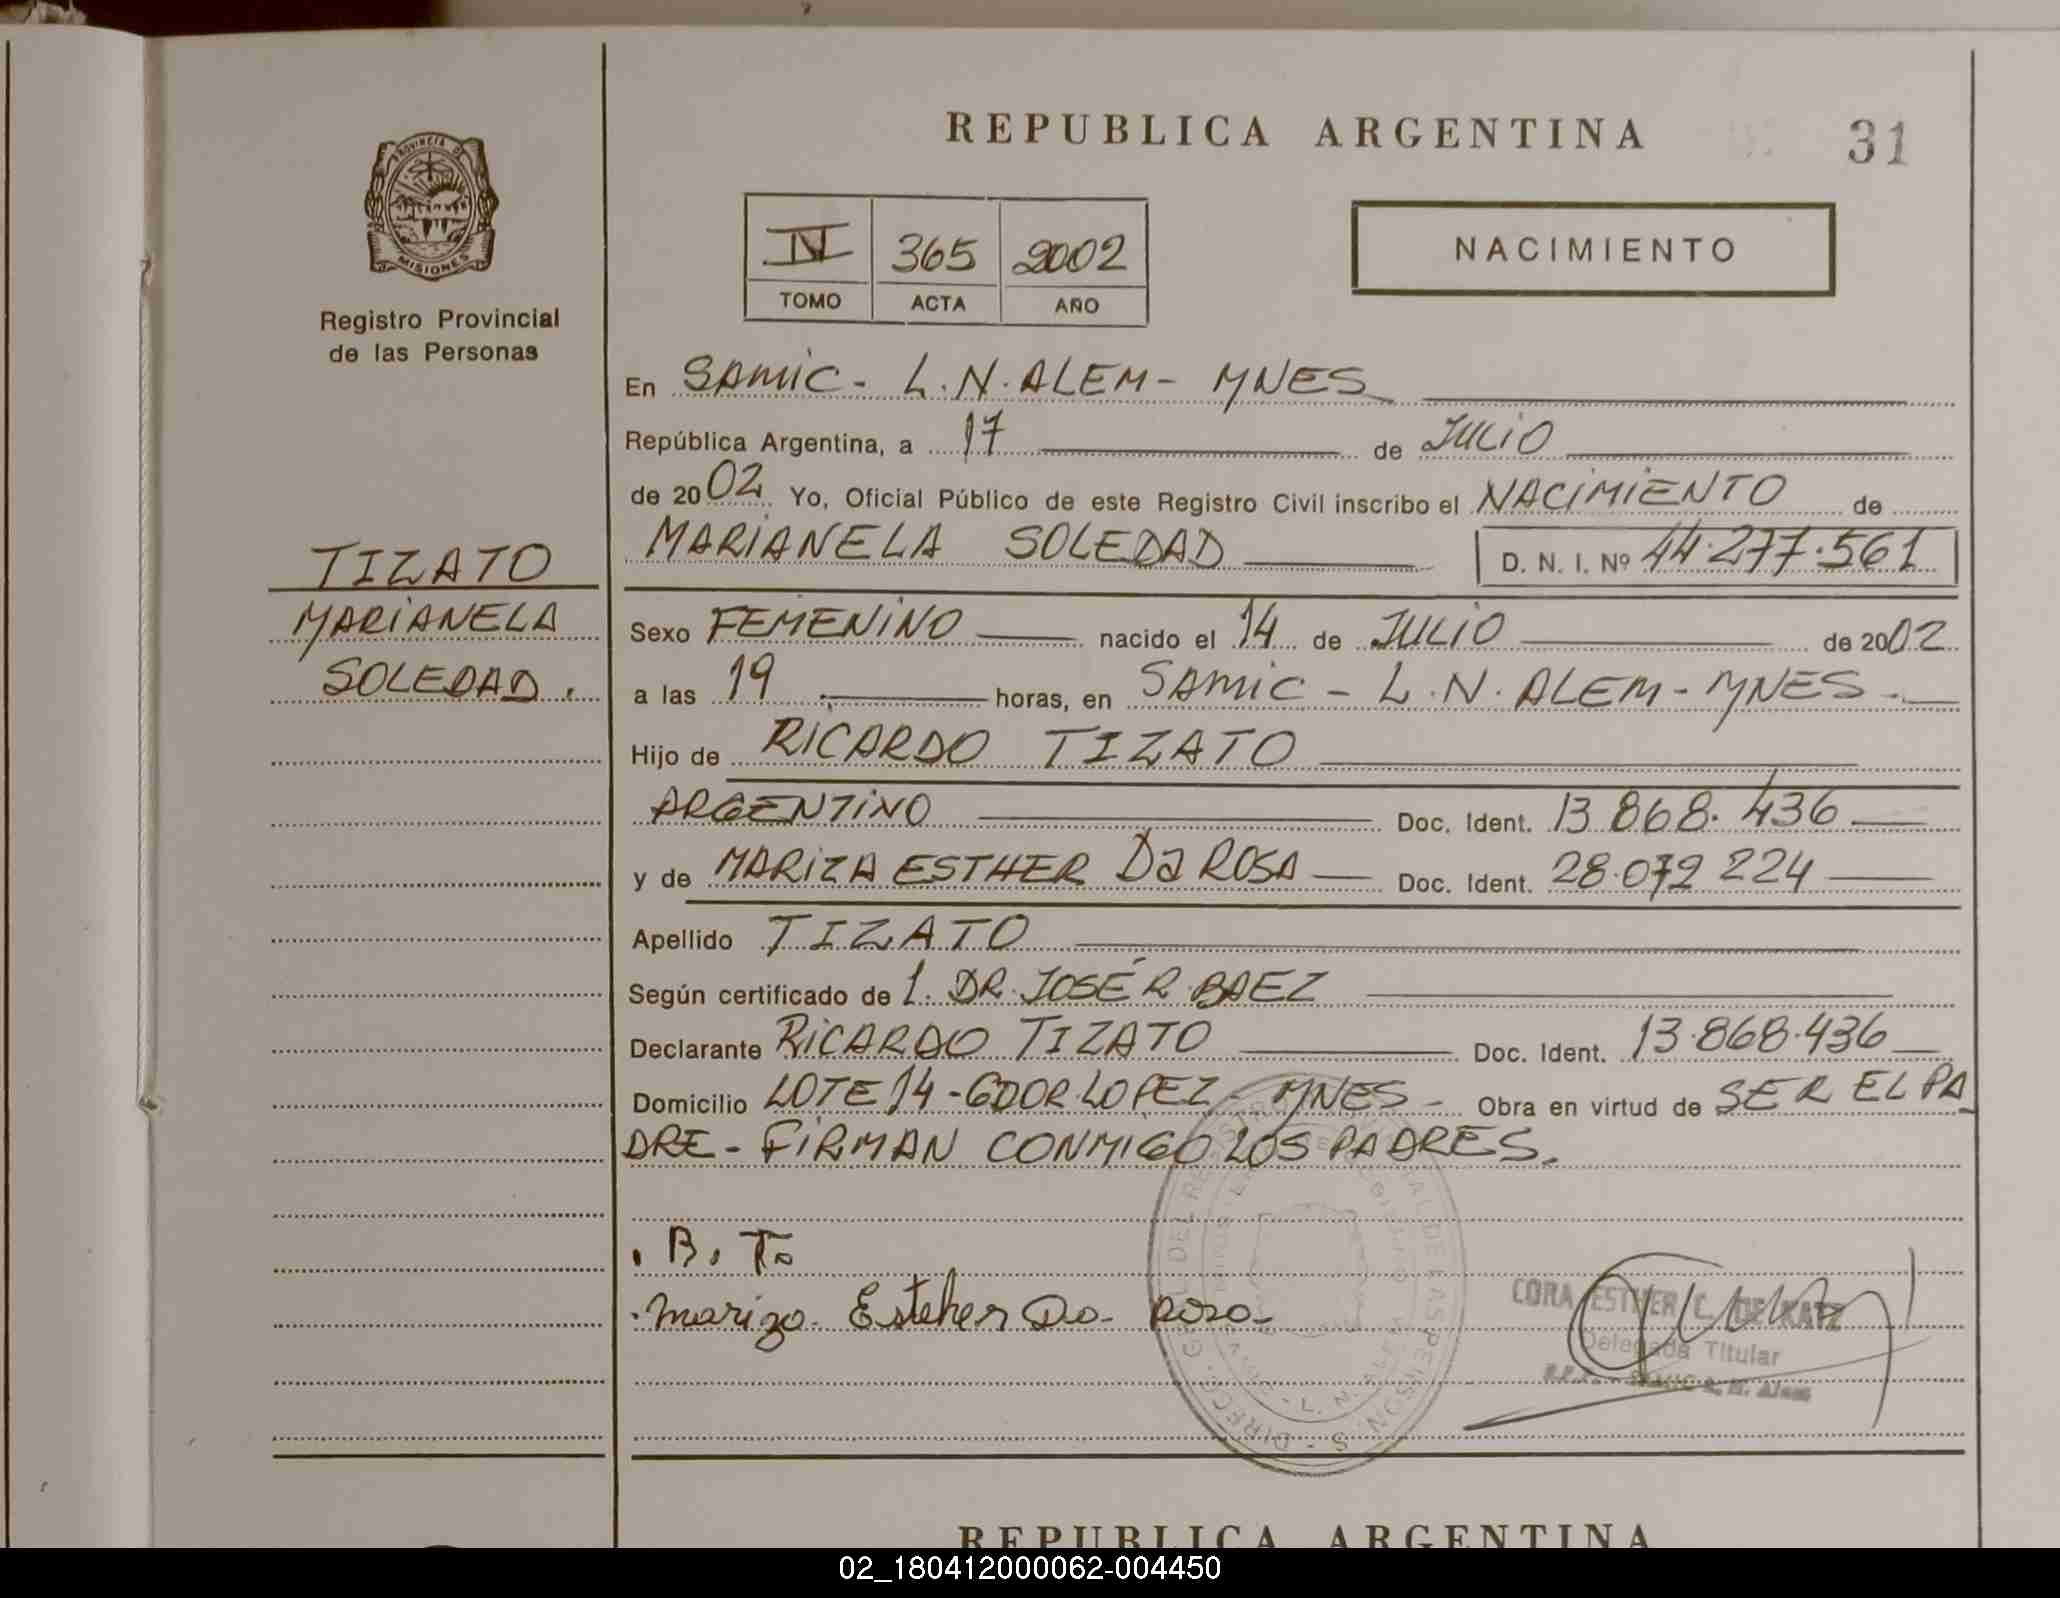 REPUBLICA ARGENTINA
31
PROVINCIA DE
MISIONES
Registro Provincial
de las Personas
IV 365 2002
TOMO ACTA AÑO
NACIMIENTO
En SAMIC - L.N. ALEM - MNES
República Argentina, a 17 de JULIO
de 2002 Yo, Oficial Público de este Registro Civil inscribo el NACIMIENTO de
MARIANELA SOLEDAD D. N. I. Nº 44.277.561
TIZATO
MARIANELA
SOLEDAD.
Sexo FEMENINO nacido el 14 de JULIO de 2002
a las 19 horas, en SAMIC - L.N. ALEM - MNES -
Hijo de RICARDO TIZATO
ARGENTINO Doc. Ident. 13.868.436
y de MARIZA ESTHER Da ROSA Doc. Ident. 28.072.224
Apellido TIZATO
Según certificado de 1. DR. JOSÉ R. BAEZ
Declarante RICARDO TIZATO Doc. Ident. 13.868.436
Domicilio LOTE 14 - GDOR. LOPEZ - MNES - Obra en virtud de SER EL PA
DRE - FIRMAN CONMIGO LOS PADRES.
. B. T.
. Mariza Esteher Da Rosa
CORA ESTHER C. DE KATZ
Delegada Titular
R.P.P. - SAMIC L. N. Alem
REPUBLICA ARGENTINA
02_180412000062-004450